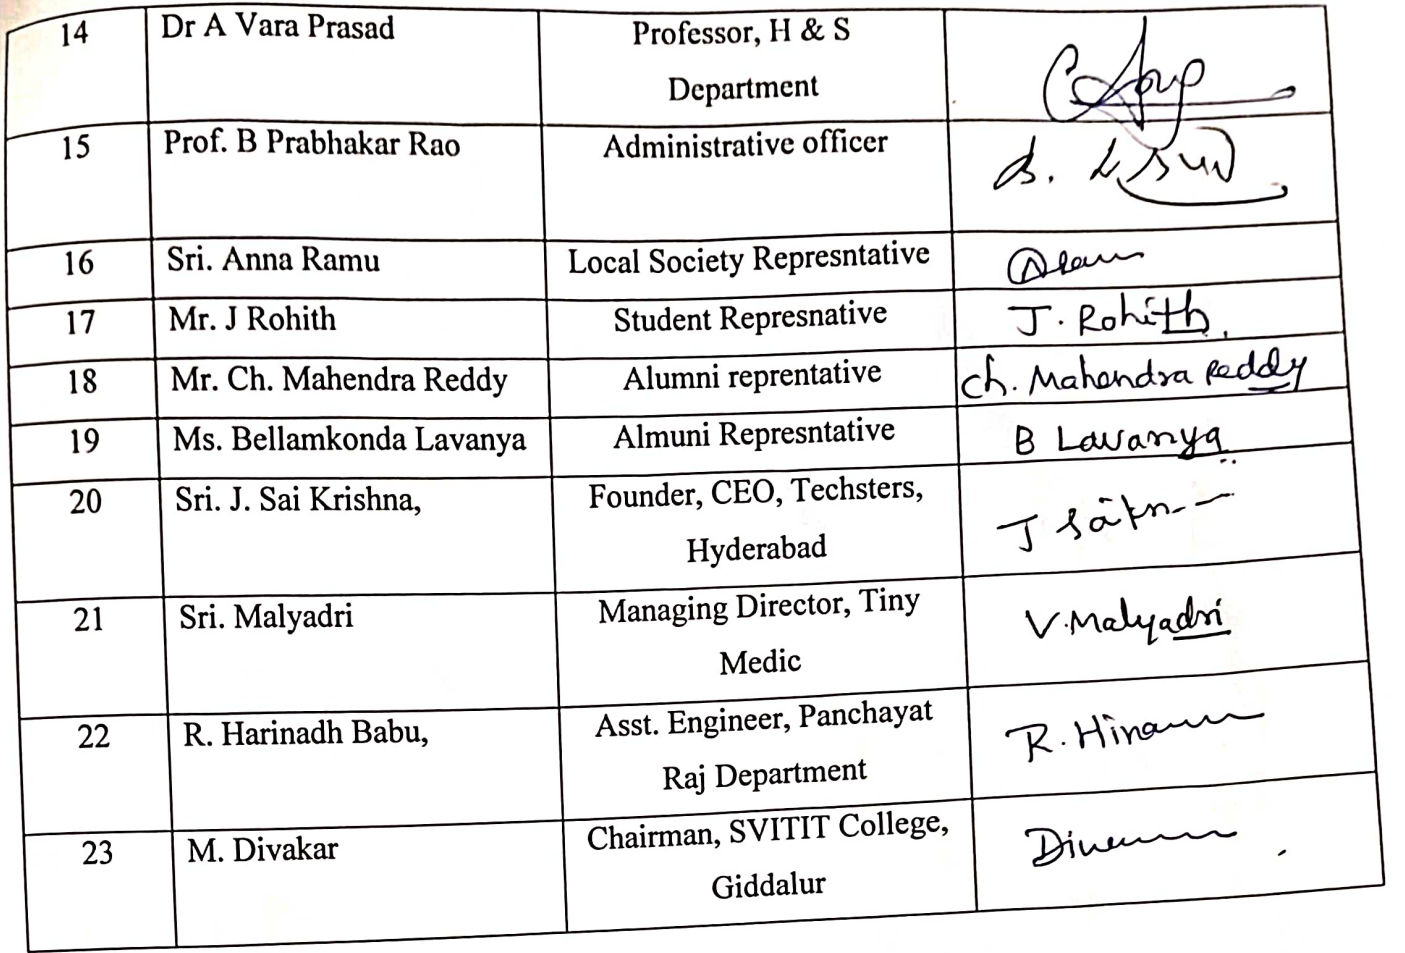 14 Dr A Vara Prasad Professor, H & S
Department
15 Prof. B Prabhakar Rao Administrative officer
16 Sri. Anna Ramu Local Society Represntative
17 Mr. J Rohith Student Represnative J. Rohith
18 Mr. Ch. Mahendra Reddy Alumni reprentative Ch. Mahendra Reddy
19 Ms. Bellamkonda Lavanya Almuni Represntative B Lavanya
20 Sri. J. Sai Krishna, Founder, CEO, Techsters,
Hyderabad
21 Sri. Malyadri Managing Director, Tiny V. Malyadri
Medic
22 R. Harinadh Babu, Asst. Engineer, Panchayat
Raj Department
23 M. Divakar Chairman, SVITIT College,
Giddalur